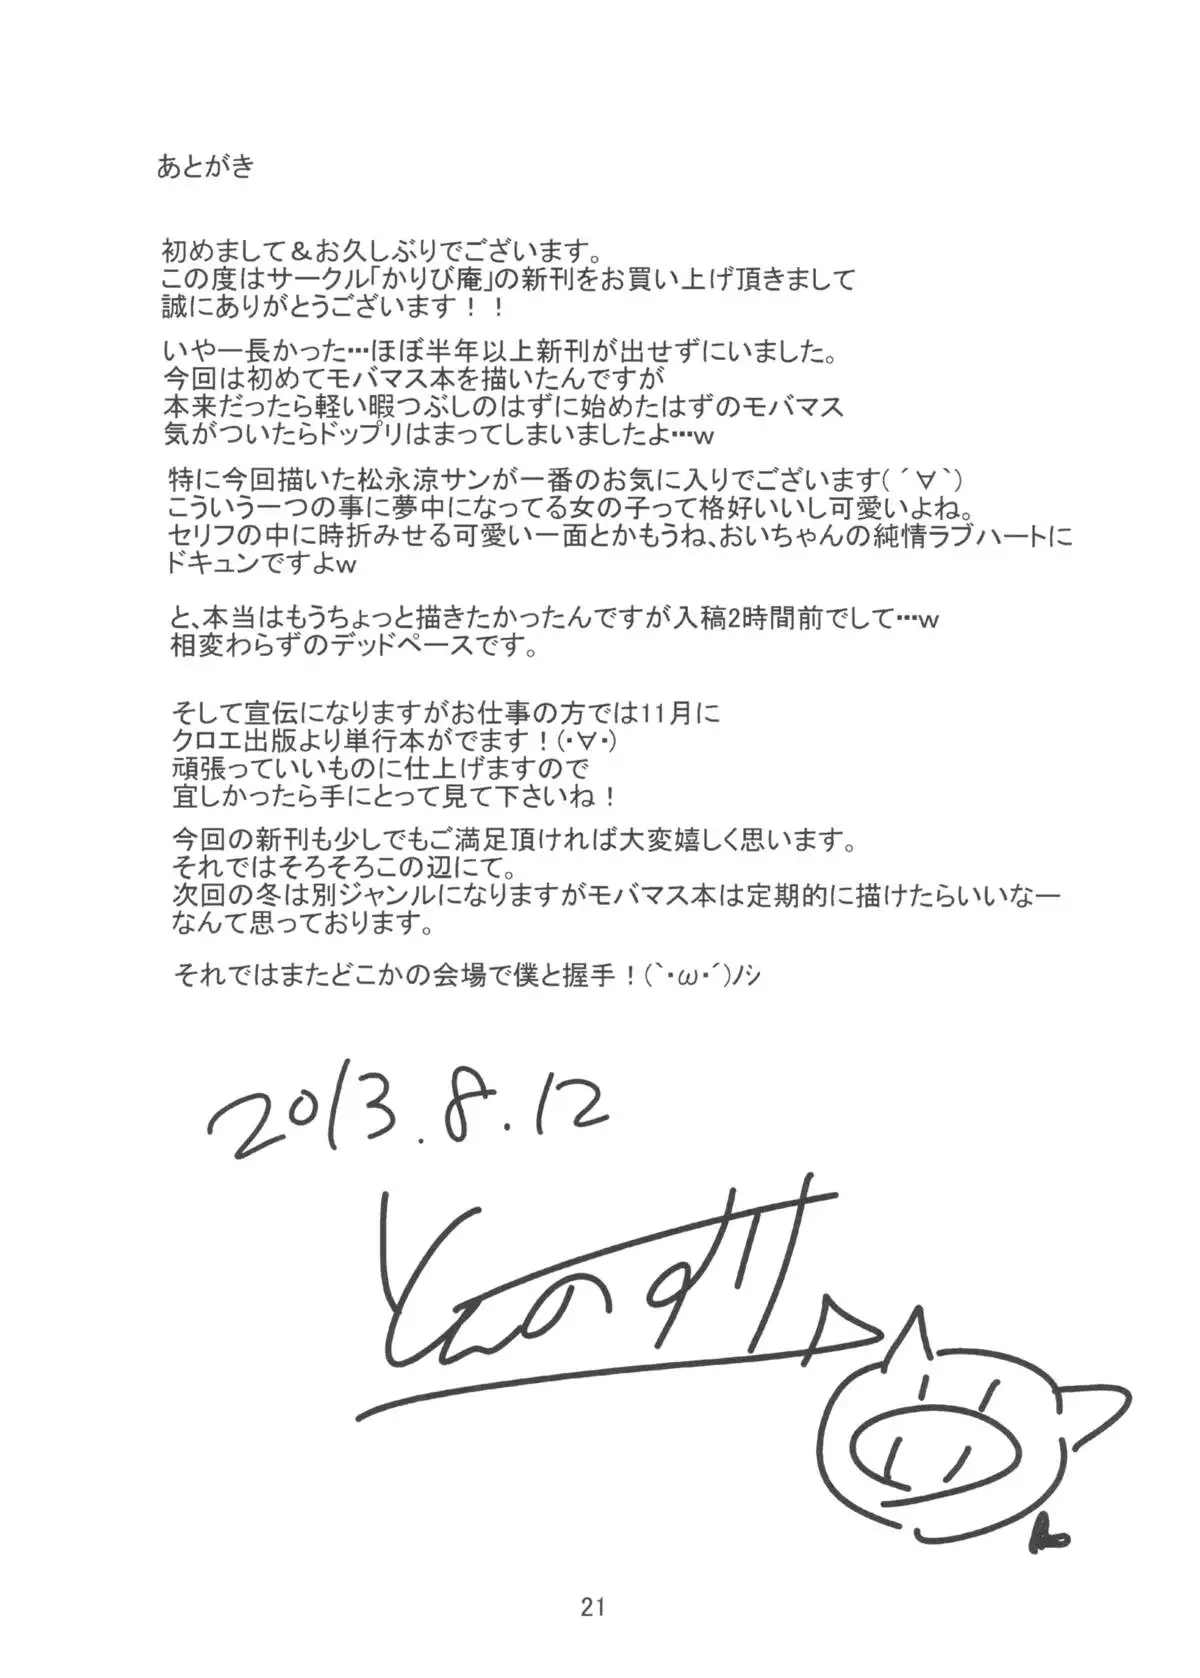 あとがき
初めまして＆お久しぶりでございます。
この度はサークル「かりび庵」の新刊をお買い上げ頂きまして
誠にありがとうございます！！
いやー長かった…ほぼ半年以上新刊が出せずにいました。
今回は初めてモバマス本を描いたんですが
本来だったら軽い暇つぶしのはずに始めたはずのモバマス
気がついたらドップリはまってしまいましたよ…w
特に今回描いた松永涼サンが一番のお気に入りでございます( ´∀`)
こういう一つの事に夢中になってる女の子って格好いいし可愛いよね。
セリフの中に時折みせる可愛い一面とかもうね、おいちゃんの純情ラブハートに
ドキュンですよw
と、本当はもうちょっと描きたかったんですが入稿2時間前でして…w
相変わらずのデッドペースです。
そして宣伝になりますがお仕事の方では11月に
クロエ出版より単行本がでます！(・∀・)
頑張っていいものに仕上げますので
宜しかったら手にとって見て下さいね！
今回の新刊も少しでもご満足頂ければ大変嬉しく思います。
それではそろそろこの辺にて。
次回の冬は別ジャンルになりますがモバマス本は定期的に描けたらいいなー
なんて思っております。
それではまたどこかの会場で僕と握手！(`・ω・´)ﾉｼ
2013.8.12
21